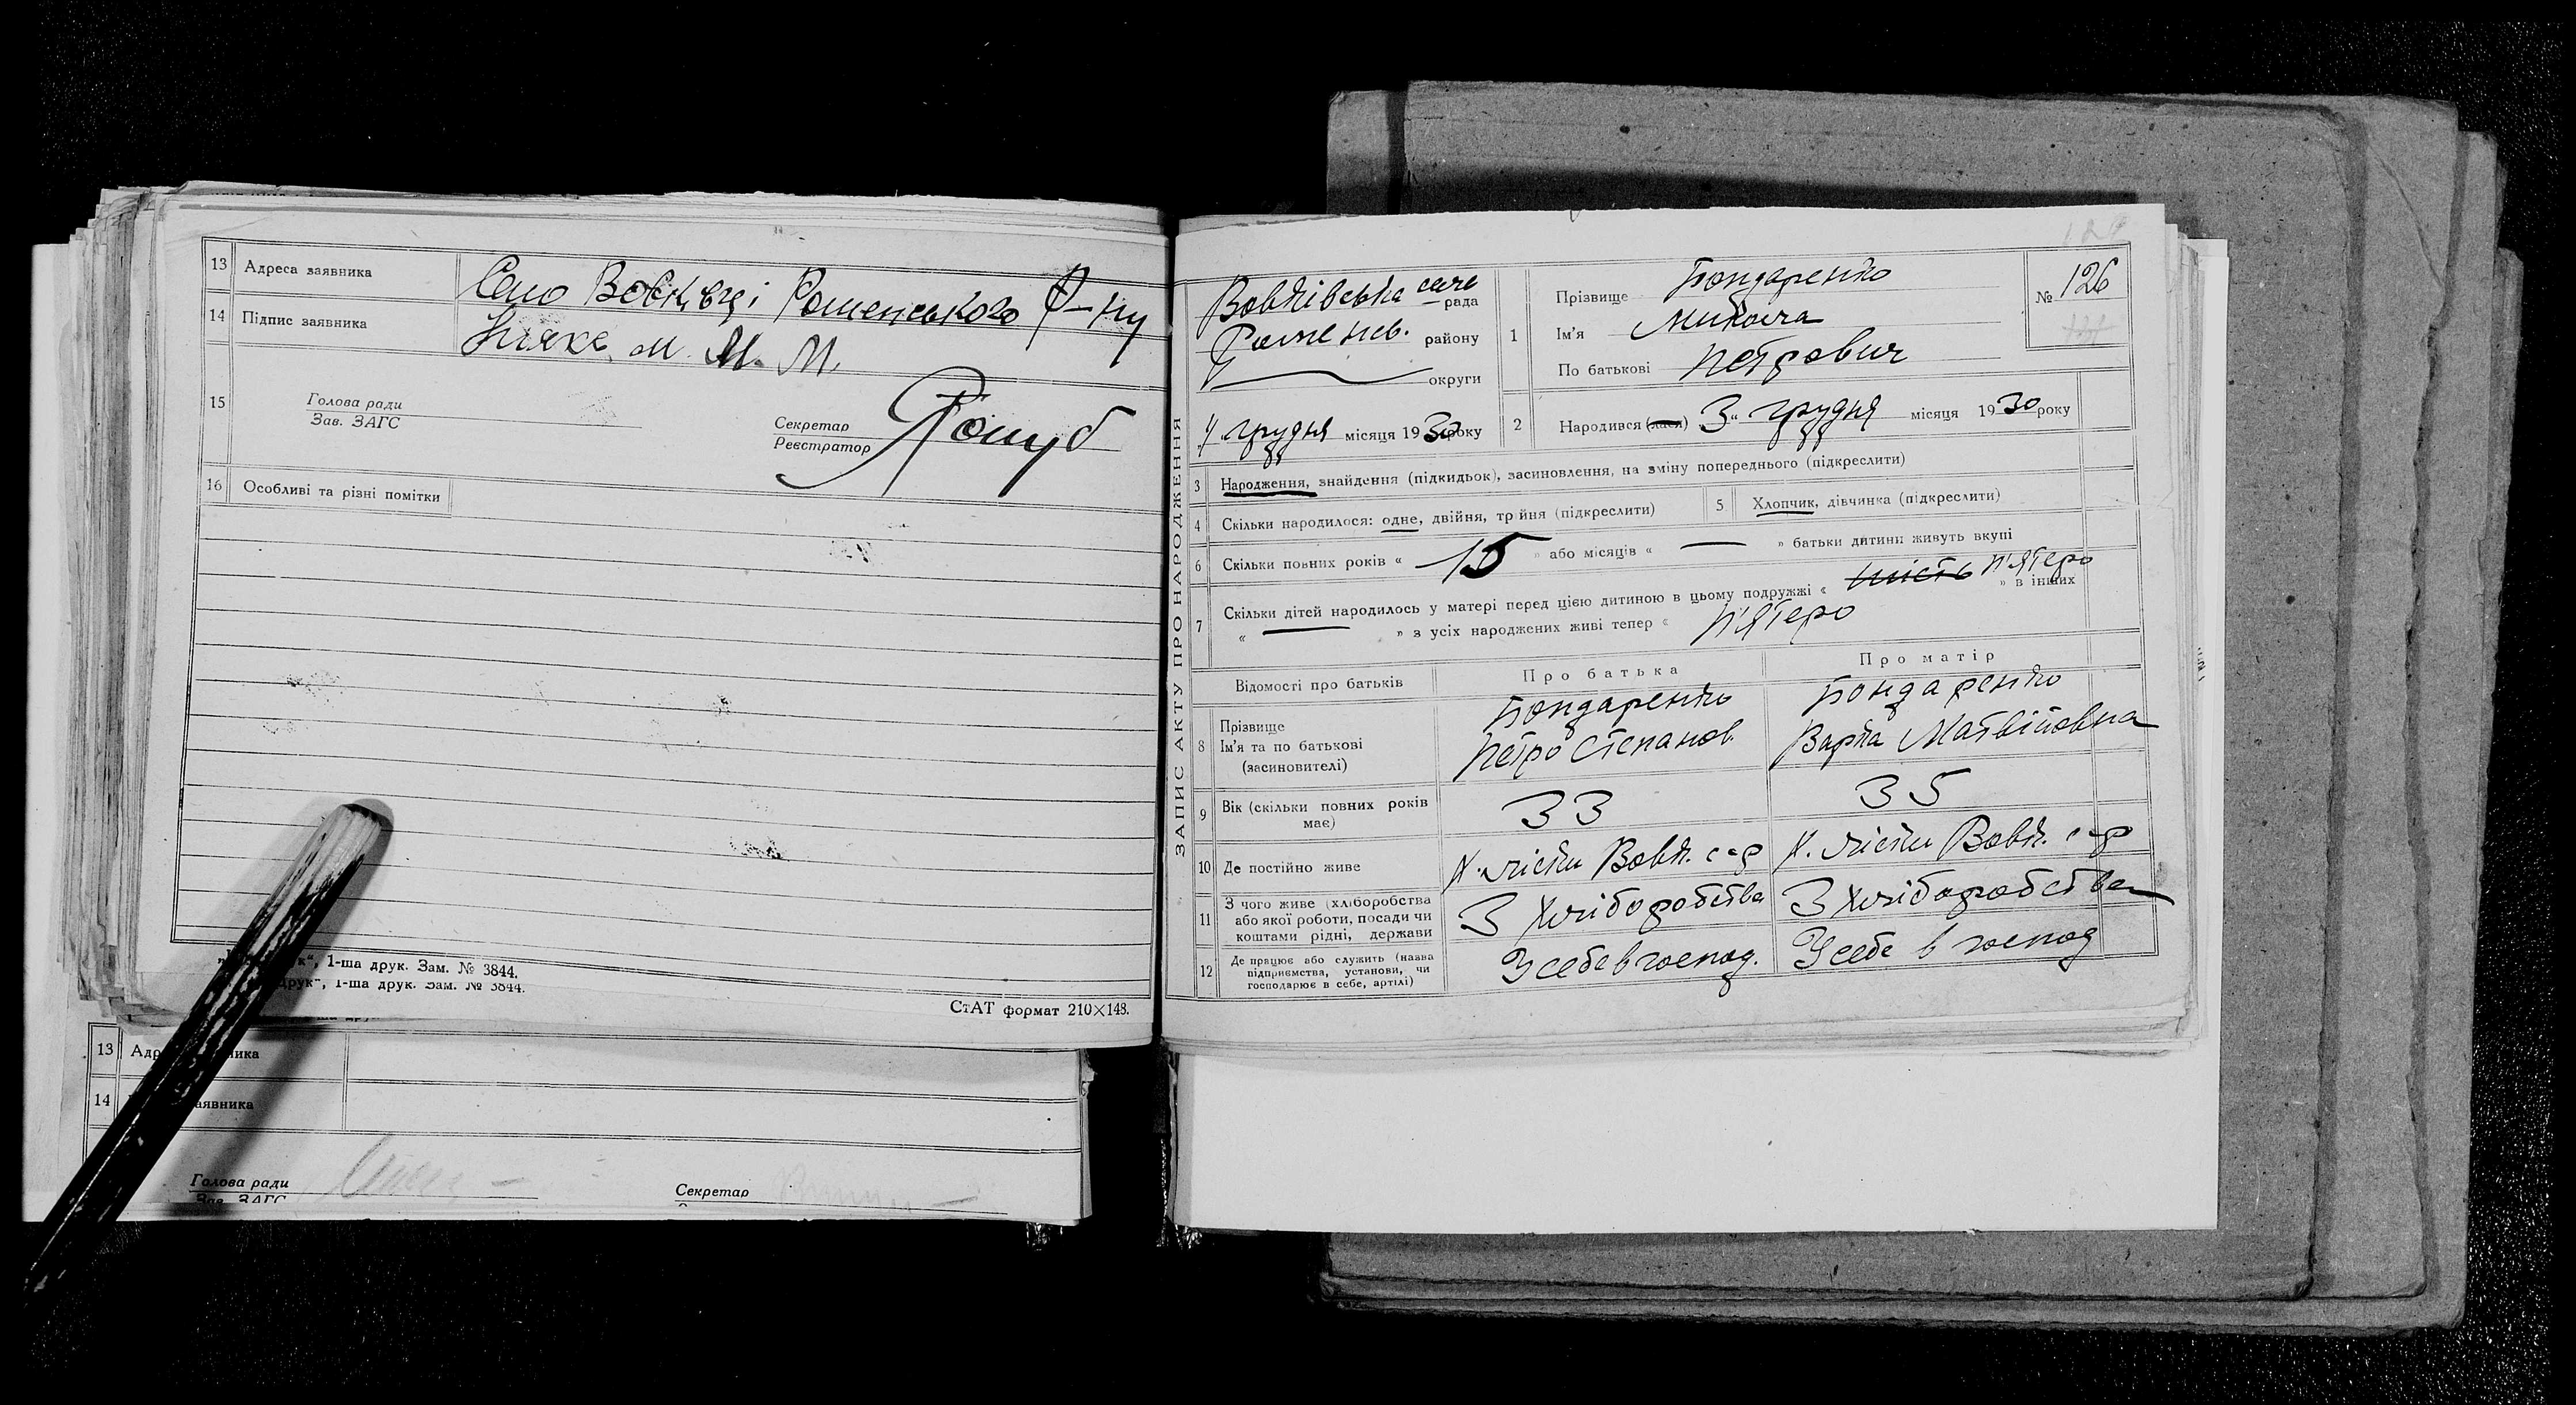 13 Адреса заявника Село Вовківці Роменського Р-ну
14 Підпис заявника М. М.
15 Голова ради
Зав. ЗАГС
Секретар
Реєстратор
16 Особливі та різні помітки
1-ша друк. Зам. № 3844.
друк", 1-ша друк. Зам. № 3844.
СтАТ формат 210×148.
13
14
Голова ради
Зав. ЗАГС
Секретар
ЗАПИС АКТУ ПРО НАРОДЖЕННЯ
Вовківська селе рада
Роменсь. району
округи
4 грудня місяця 1930 року
1 Прізвище Бондаренко
Ім'я Микола
По батькові Петрович
№ 126
2 Народився (лася) 3 " грудня місяця 1930 року
3 Народження, знайдення (підкидьок), засиновлення, на зміну попереднього (підкреслити)
4 Скільки народилося: одне, двійня, трійня (підкреслити)
5 Хлопчик, дівчинка (підкреслити)
6 Скільки повних років « 15 » або місяців « — » батьки дитини живуть вкупі
7 Скільки дітей народилось у матері перед цією дитиною в цьому подружжі « шість п'ятеро » в інших
« — » з усіх народжених живі тепер « п'ятеро
Відомості про батьків Про батька Про матір
8 Прізвище Бондаренко Бондаренко
Ім'я та по батькові Петро Степанов. Варка Матвійовна
(засиновителі)
9 Вік (скільки повних років має) 33 35
10 Де постійно живе Х. Вовк. с-р Х. Вовк. с-р
11 З чого живе (хліборобства або якої роботи, посади чи коштами рідні, держави З хліборобства З хліборобства
12 Де працює або служить (назва підприємства, установи, чи господарює в себе, артілі) У себе в господ. У себе в господ